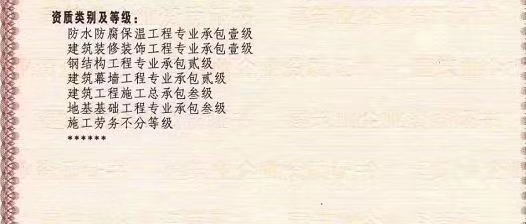 资质类别及等级：
防水防腐保温工程专业承包壹级
建筑装修装饰工程专业承包壹级
钢结构工程专业承包贰级
建筑幕墙工程专业承包贰级
建筑工程施工总承包叁级
地基基础工程专业承包叁级
施工劳务不分等级
******